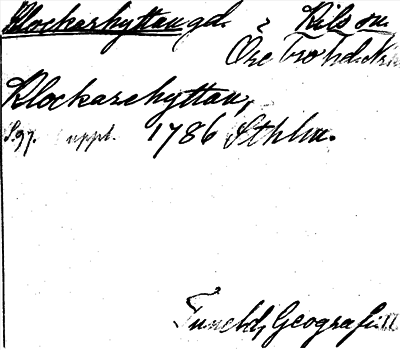 Klockarhyttan gd. i Kils sn.
Örebro hd. N.
Klockarehyttan,
S. 97. uppl. 1786 Sthlm.
Tuneld, Geografi II